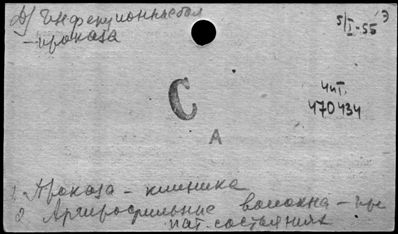 А) Инфекционные бол
- проказа
5/I-55 Э
чит.
470434
С
А
1. Проказа - клиника
2. Аргирофильные волокна - при
пат. состояниях